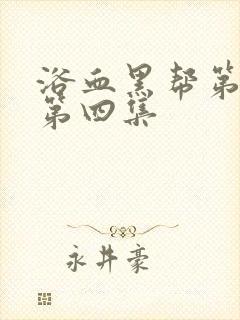 浴血黑帮第
第四集
永井豪